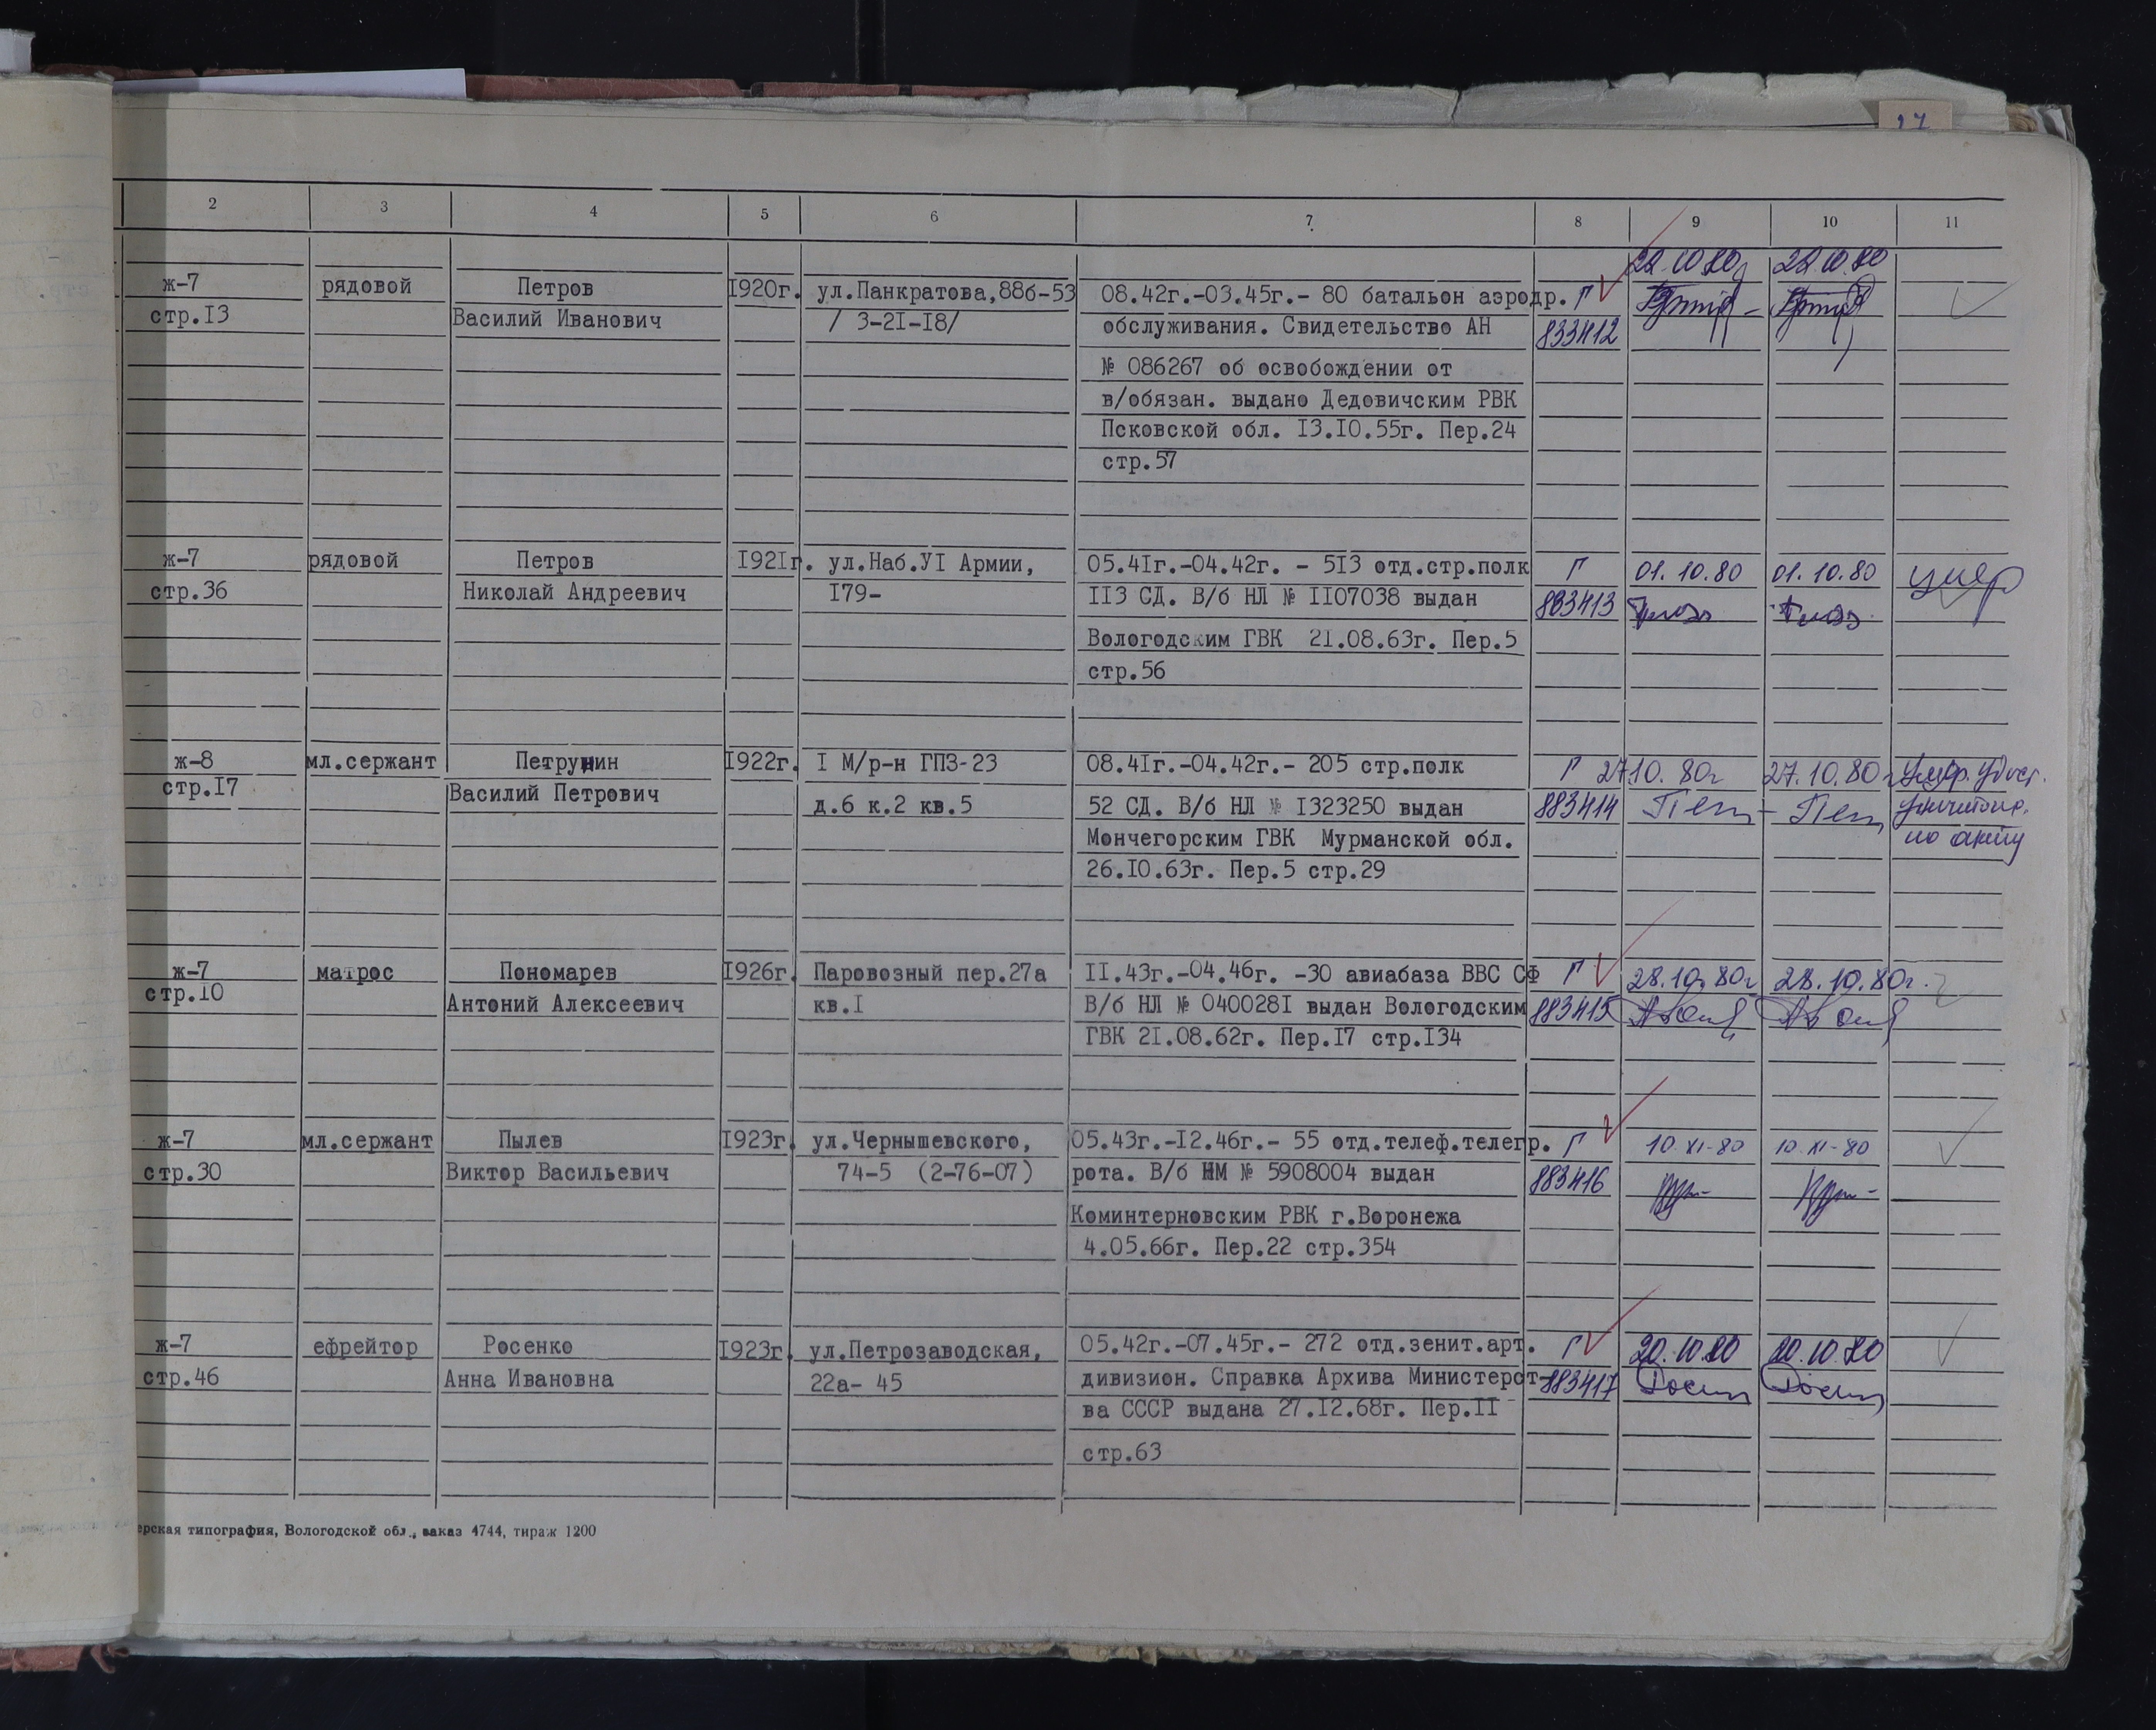 27
2 3 4 5 6 7 8 9 10 11
22.10.80 22.10.80
ж-7 рядовой Петров 1920г. ул.Панкратова,88б-53 08.42г.-03.45г.- 80 батальон аэродр. Г
стр.13 Василий Иванович / 3-21-18/ обслуживания. Свидетельство АН 833412
№ 086267 об освобождении от
в/обязан. выдано Дедовичским РВК
Псковской обл. 13.10.55г. Пер.24
стр.57
ж-7 рядовой Петров 1921г. ул.Наб.УI Армии, 05.41г.-04.42г. - 513 отд.стр.полк Г 01.10.80 01.10.80 умер
стр.36 Николай Андреевич 179- 113 СД. В/б НЛ № 1107038 выдан 883413
Вологодским ГВК 21.08.63г. Пер.5
стр.56
ж-8 мл.сержант Петрунин 1922г. I М/р-н ГПЗ-23 08.41г.-04.42г.- 205 стр.полк Г 27.10.80г 27.10.80г Умер. удост.
стр.17 Василий Петрович д.6 к.2 кв.5 52 СД. В/б НЛ № 1323250 выдан 883414 Пет Пет уничтоже.
Мончегорским ГВК Мурманской обл. по акту
26.10.63г. Пер.5 стр.29
ж-7 матрос Пономарев 1926г. Паровозный пер.27а 11.43г.-04.46г. -30 авиабаза ВВС СФ Г 28.10.80г 28.10.80г.
стр.10 Антоний Алексеевич кв.1 В/б НЛ № 0400281 выдан Вологодским 883415
ГВК 21.08.62г. Пер.17 стр.134
ж-7 мл.сержант Пылев 1923г. ул.Чернышевского, 05.43г.-12.46г.- 55 отд.телеф.телегр. Г 10.XI-80 10.XI-80
стр.30 Виктор Васильевич 74-5 (2-76-07) рота. В/б НМ № 5908004 выдан 883416
Коминтерновским РВК г.Воронежа
4.05.66г. Пер.22 стр.354
ж-7 ефрейтор Росенко 1923г. ул.Петрозаводская, 05.42г.-07.45г.- 272 отд.зенит.арт. Г 20.10.80 20.10.80
стр.46 Анна Ивановна 22а- 45 дивизион. Справка Архива Министерст- 883417
ва СССР выдана 27.12.68г. Пер.11
стр.63
ерская типография, Вологодской обл., заказ 4744, тираж 1200